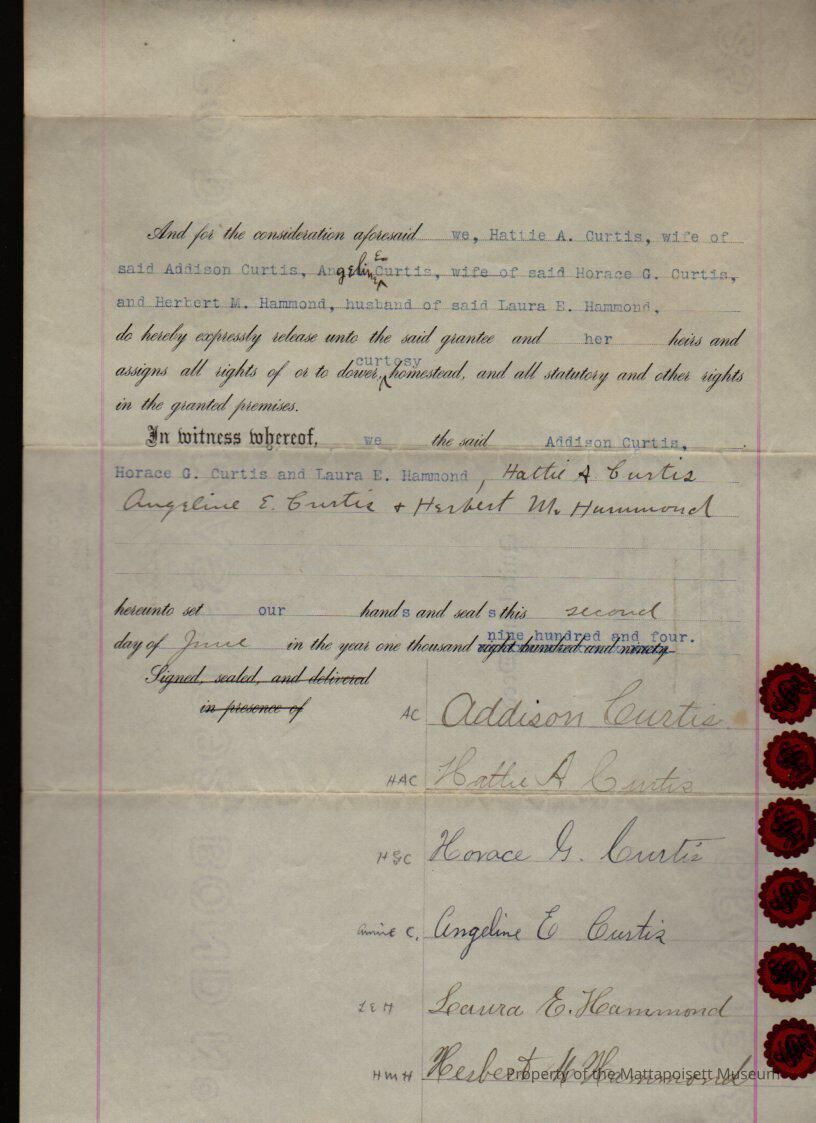 And for the consideration aforesaid we, Hattie A. Curtis, wife of
said Addison Curtis, Angeline E. Curtis, wife of said Horace G. Curtis,
and Herbert M. Hammond, husband of said Laura E. Hammond,
do hereby expressly release unto the said grantee and her heirs and
curtesy
assigns all rights of or to dower, homestead, and all statutory and other rights
in the granted premises.
In witness whereof, we the said Addison Curtis,
Horace G. Curtis and Laura E. Hammond, Hattie A Curtis
Angeline E. Curtis + Herbert M. Hammond
hereunto set our hands and seals this second
nine hundred and four.
day of June in the year one thousand eight hundred and ninety
Signed, sealed, and delivered
in presence of
AC Addison Curtis.
HAC Hattie A Curtis
HGC Horace G. Curtis
Annie C. Angeline E Curtis
LEH Laura E. Hammond
HMH Herbert M Hammond
Property of the Mattapoisett Museum